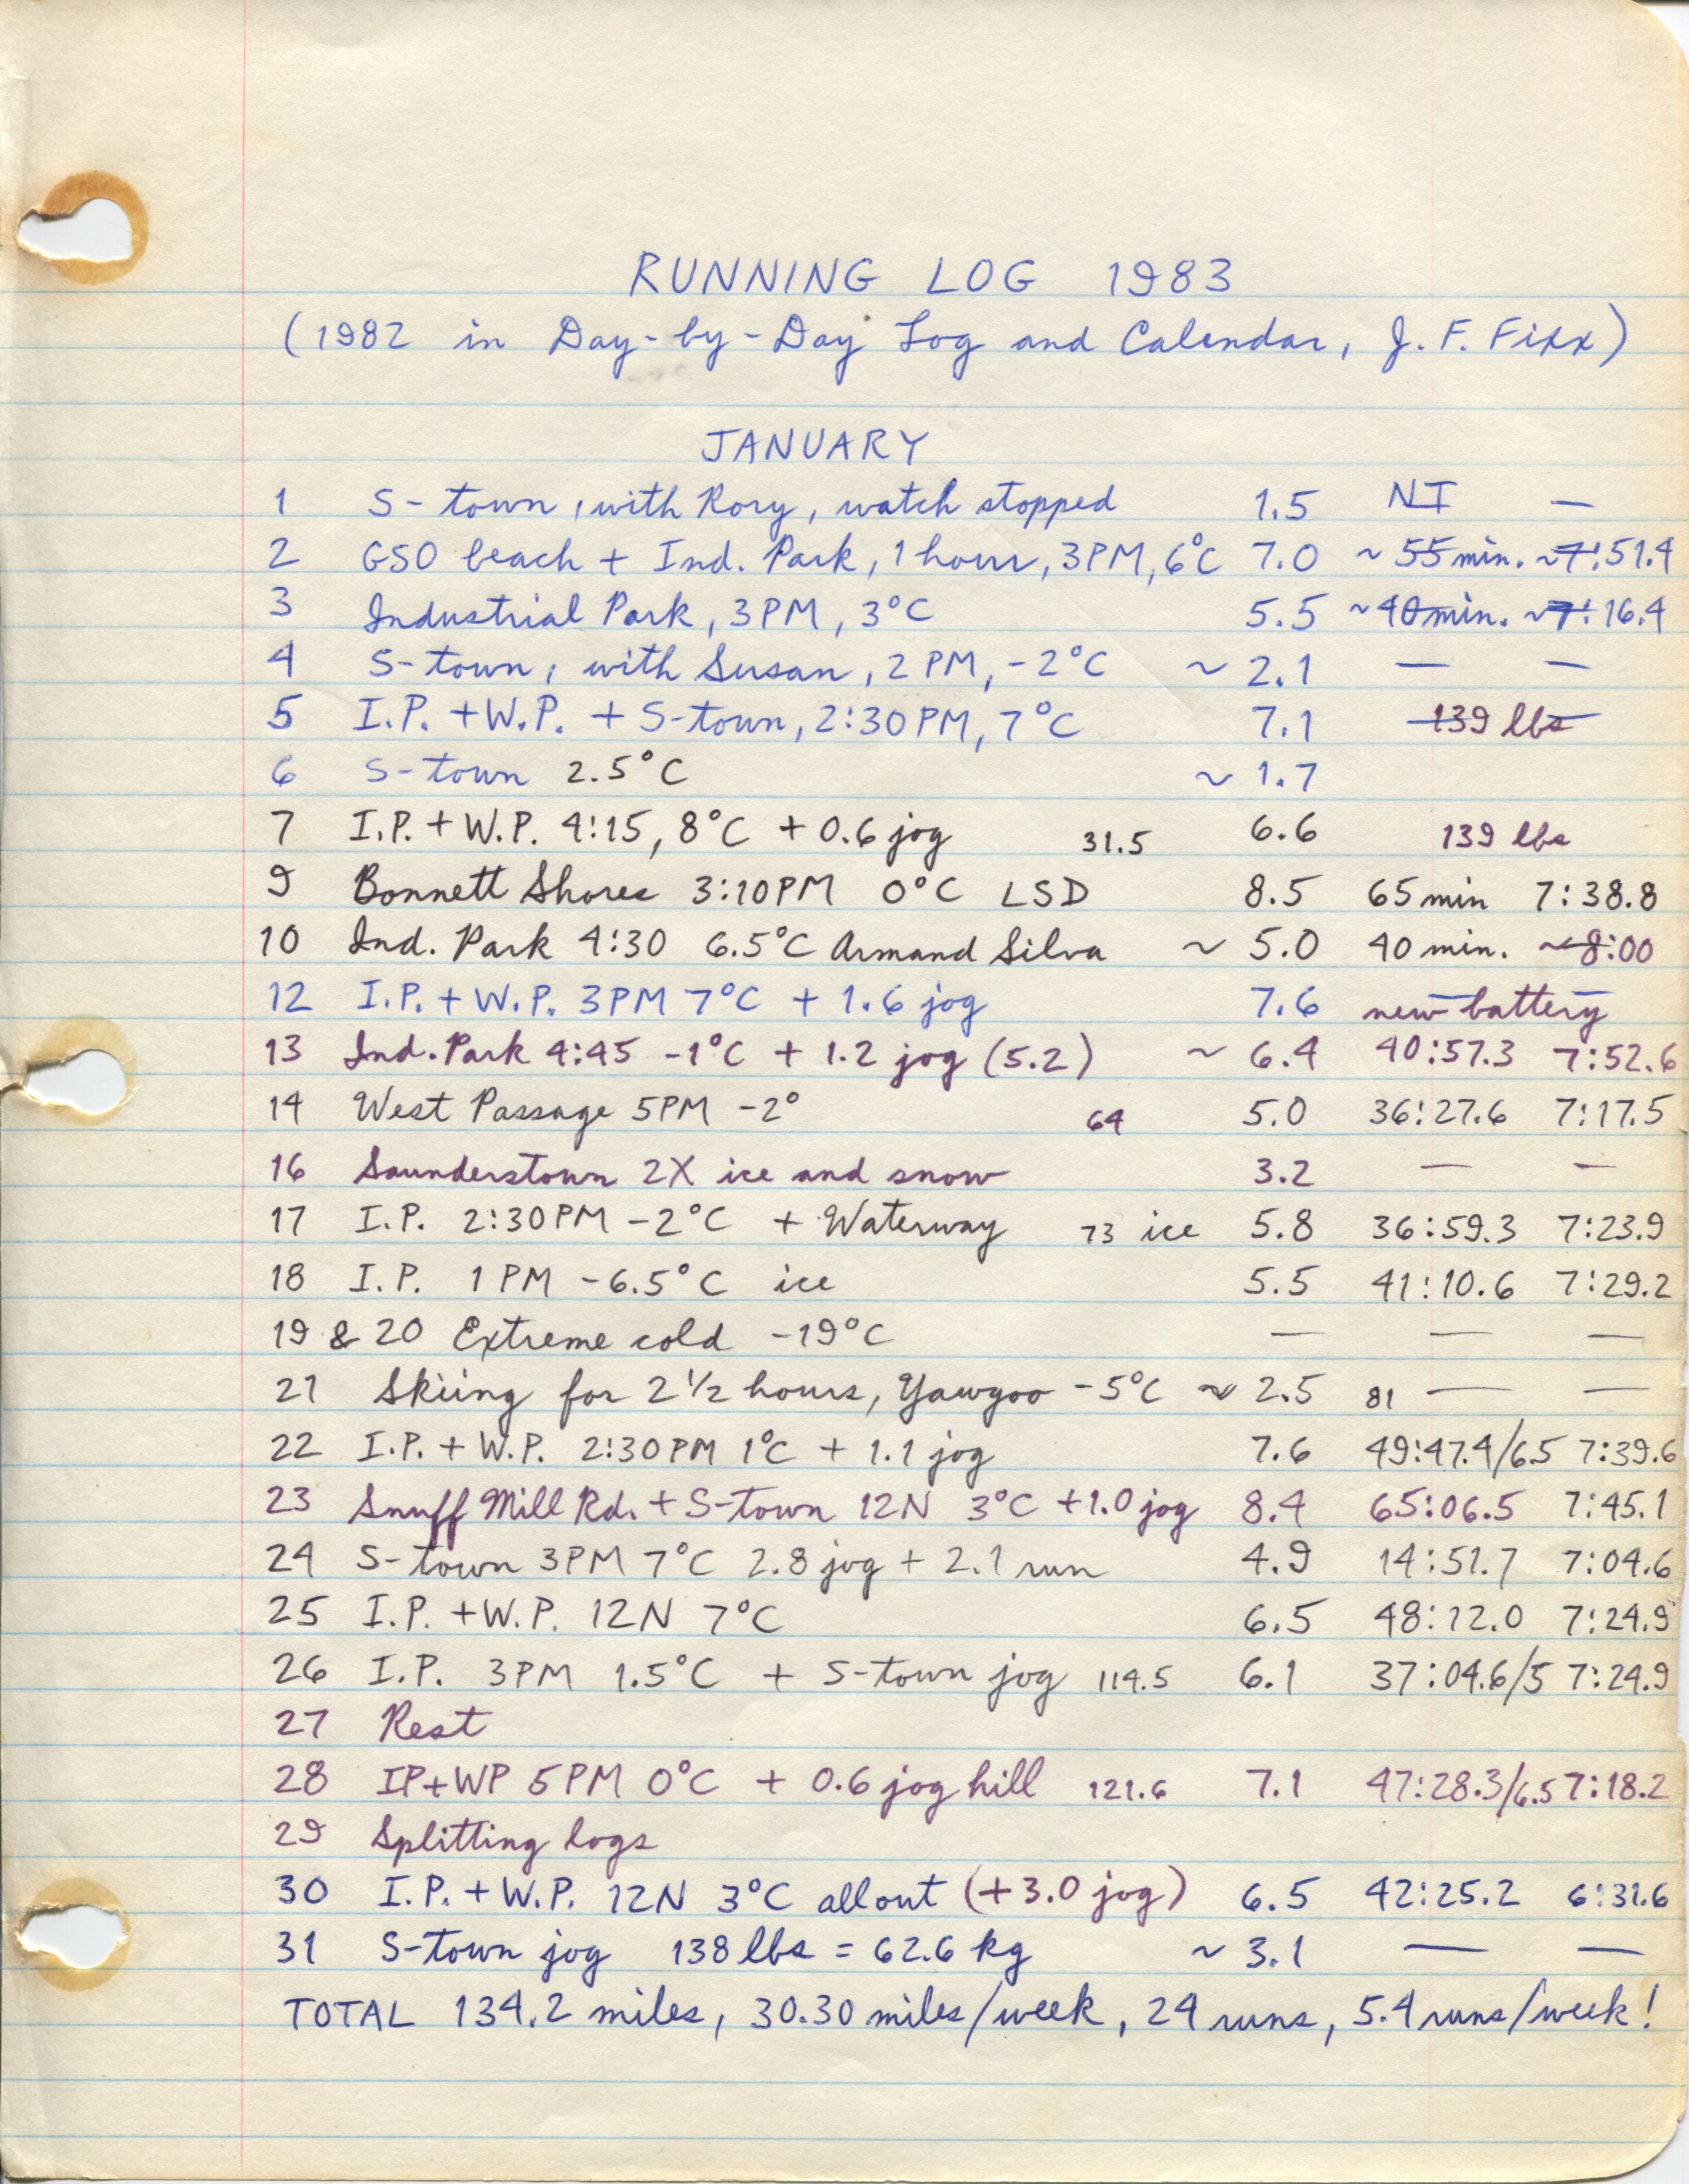 RUNNING LOG 1983
(1982 in Day-by-Day Log and Calendar, J. F. Fixx)
JANUARY
1 S-town, with Rory, watch stopped 1.5 NT —
2 GSO beach + Ind. Park, 1 hour, 3PM, 6°C 7.0 ~55 min. ~7:51.4
3 Industrial Park, 3PM, 3°C 5.5 ~40 min. ~7:16.4
4 S-town, with Susan, 2 PM, -2°C ~ 2.1 — —
5 I.P. + W.P. + S-town, 2:30 PM, 7°C 7.1 139 lbs
6 S-town 2.5°C ~ 1.7
7 I.P. + W.P. 4:15, 8°C + 0.6 jog 31.5 6.6 139 lbs
9 Bonnett Shores 3:10PM 0°C LSD 8.5 65 min 7:38.8
10 Ind. Park 4:30 6.5°C Armand Silva ~ 5.0 40 min. ~8:00
12 I.P. + W.P. 3PM 7°C + 1.6 jog 7.6 new battery
13 Ind. Park 4:45 -1°C + 1.2 jog (5.2) ~ 6.4 40:57.3 7:52.6
14 West Passage 5PM -2° 64 5.0 36:27.6 7:17.5
16 Saunderstown 2X ice and snow 3.2 — —
17 I.P. 2:30PM -2°C + Waterway 73 ice 5.8 36:59.3 7:23.9
18 I.P. 1 PM -6.5°C ice 5.5 41:10.6 7:29.2
19 & 20 Extreme cold -19°C — — —
21 Skiing for 2 1/2 hours, Yawgoo -5°C ~ 2.5 81 — —
22 I.P. + W.P. 2:30PM 1°C + 1.1 jog 7.6 49:47.4/6.5 7:39.6
23 Snuff Mill Rd. + S-town 12N 3°C +1.0 jog 8.4 65:06.5 7:45.1
24 S-town 3PM 7°C 2.8 jog + 2.1 run 4.9 14:51.7 7:04.6
25 I.P. + W.P. 12N 7°C 6.5 48:12.0 7:24.9
26 I.P. 3PM 1.5°C + S-town jog 114.5 6.1 37:04.6/5 7:24.9
27 Rest
28 IP+WP 5PM 0°C + 0.6 jog hill 121.6 7.1 47:28.3/6.5 7:18.2
29 Splitting logs
30 I.P. + W.P. 12N 3°C all out (+3.0 jog) 6.5 42:25.2 6:31.6
31 S-town jog 138 lbs = 62.6 kg ~ 3.1 — —
TOTAL 134.2 miles, 30.30 miles/week, 24 runs, 5.4 runs/week!